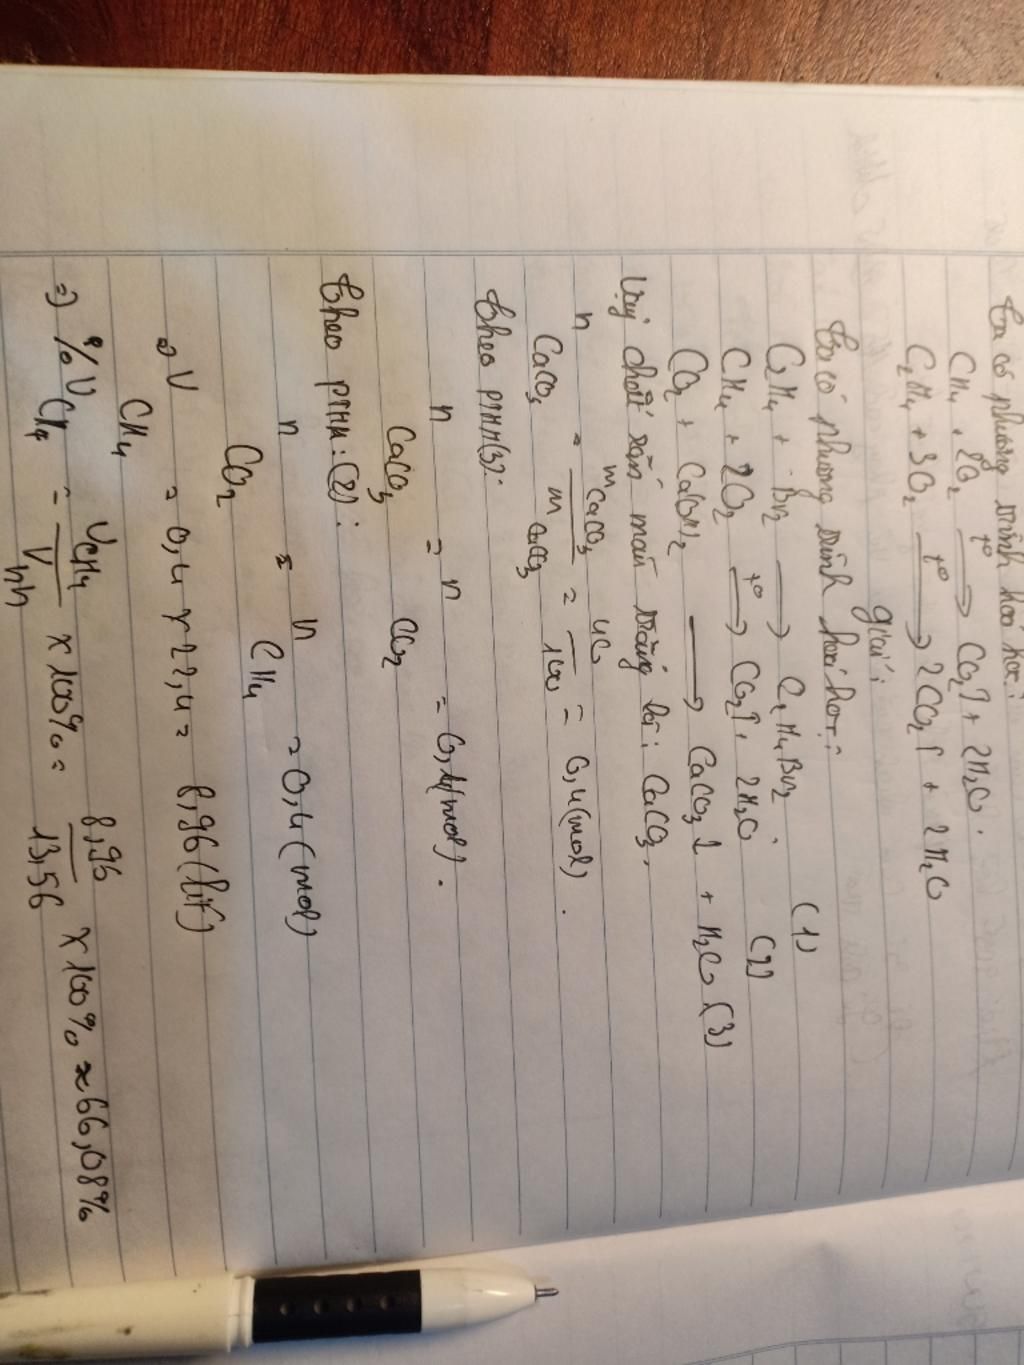 ta có phương trình hoá học:
CH₄ + 2O₂ —t°→ CO₂↑ + 2H₂O.
C₂H₄ + 3O₂ —t°→ 2CO₂↑ + 2H₂O
giải:
ta có phương trình hoá học:
C₂H₄ + Br₂ ⟶ C₂H₄Br₂ (1)
CH₄ + 2O₂ —t°→ CO₂↑ + 2H₂O (2)
CO₂ + Ca(OH)₂ ⟶ CaCO₃↓ + H₂O (3)
Vậy chất rắn màu trắng là: CaCO₃.
n CaCO₃ = mCaCO₃ / MCaCO₃ = 40/100 = 0,4(mol).
theo PTHH(3):
n CaCO₃ = n CO₂ = 0,4(mol).
theo PTHH:(2):
n CO₂ = n CH₄ = 0,4(mol)
⇒ V CH₄ = 0,4 x 22,4 = 8,96(lít)
⇒ %V CH₄ = VCH₄ / Vhh x 100% = 8,96 / 13,56 x 100% ≈ 66,08%